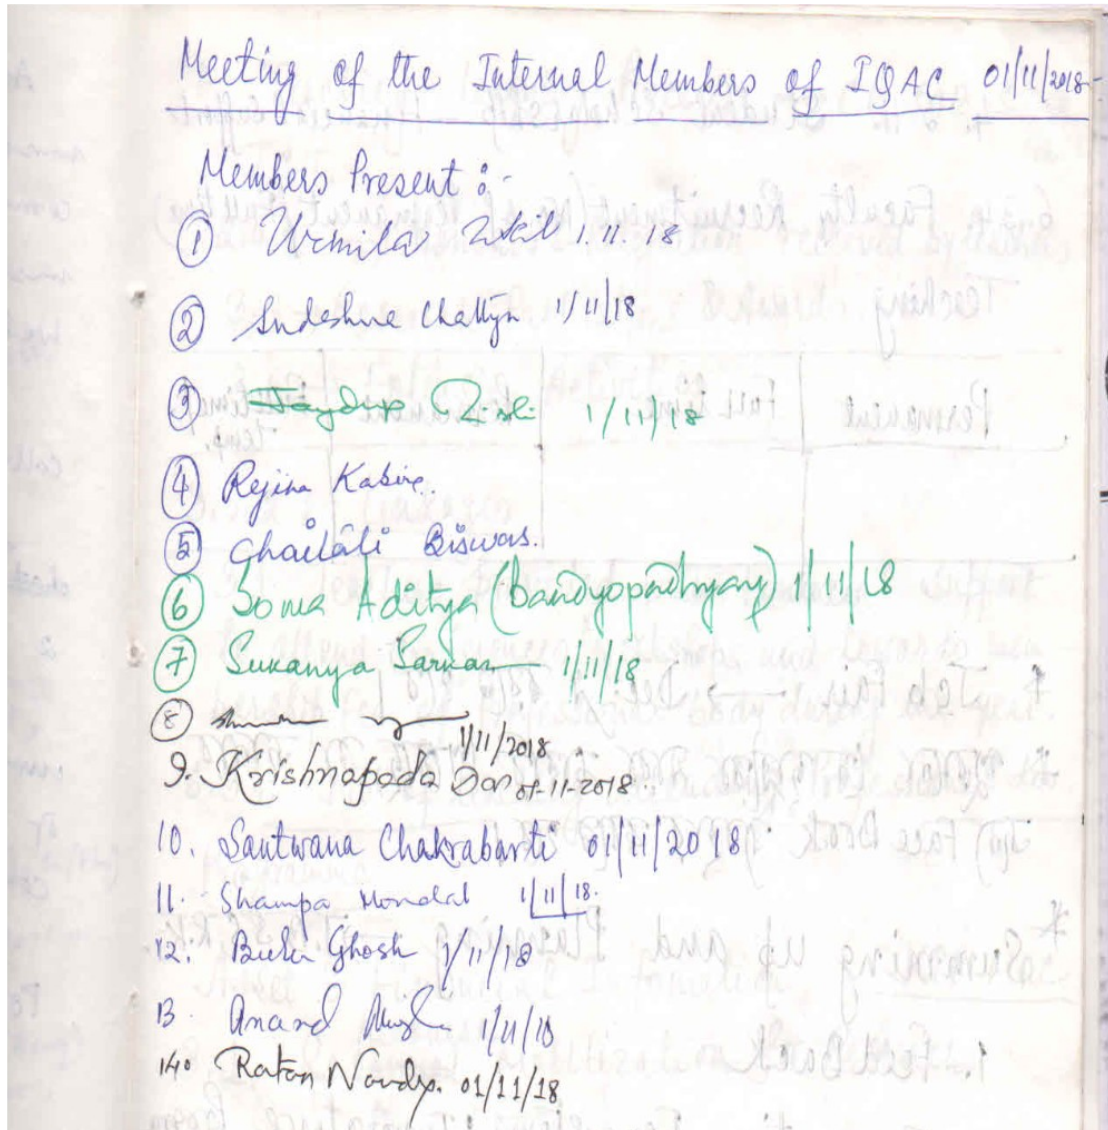 Meeting of the Internal Members of IQAC 01/11/2018
Members Present :-
① Urmila Ukil 1.11.18
② 1/11/18
③ 1/11/18
④ Rejina Kabir.
⑤ Chaitali Biswas.
⑥ Soma Aditya (Bandyopadhyay) 1/11/18
⑦ Sukanya Sarkar 1/11/18
⑧ 1/11/2018
9. Krishnapada Das 01-11-2018.
10. Santwana Chakrabarti 01/11/2018
11. Shampa Mondal 1/11/18.
12. Ghosh 1/11/18
13. Anand 1/11/18
14. Ratan Nandy. 01/11/18